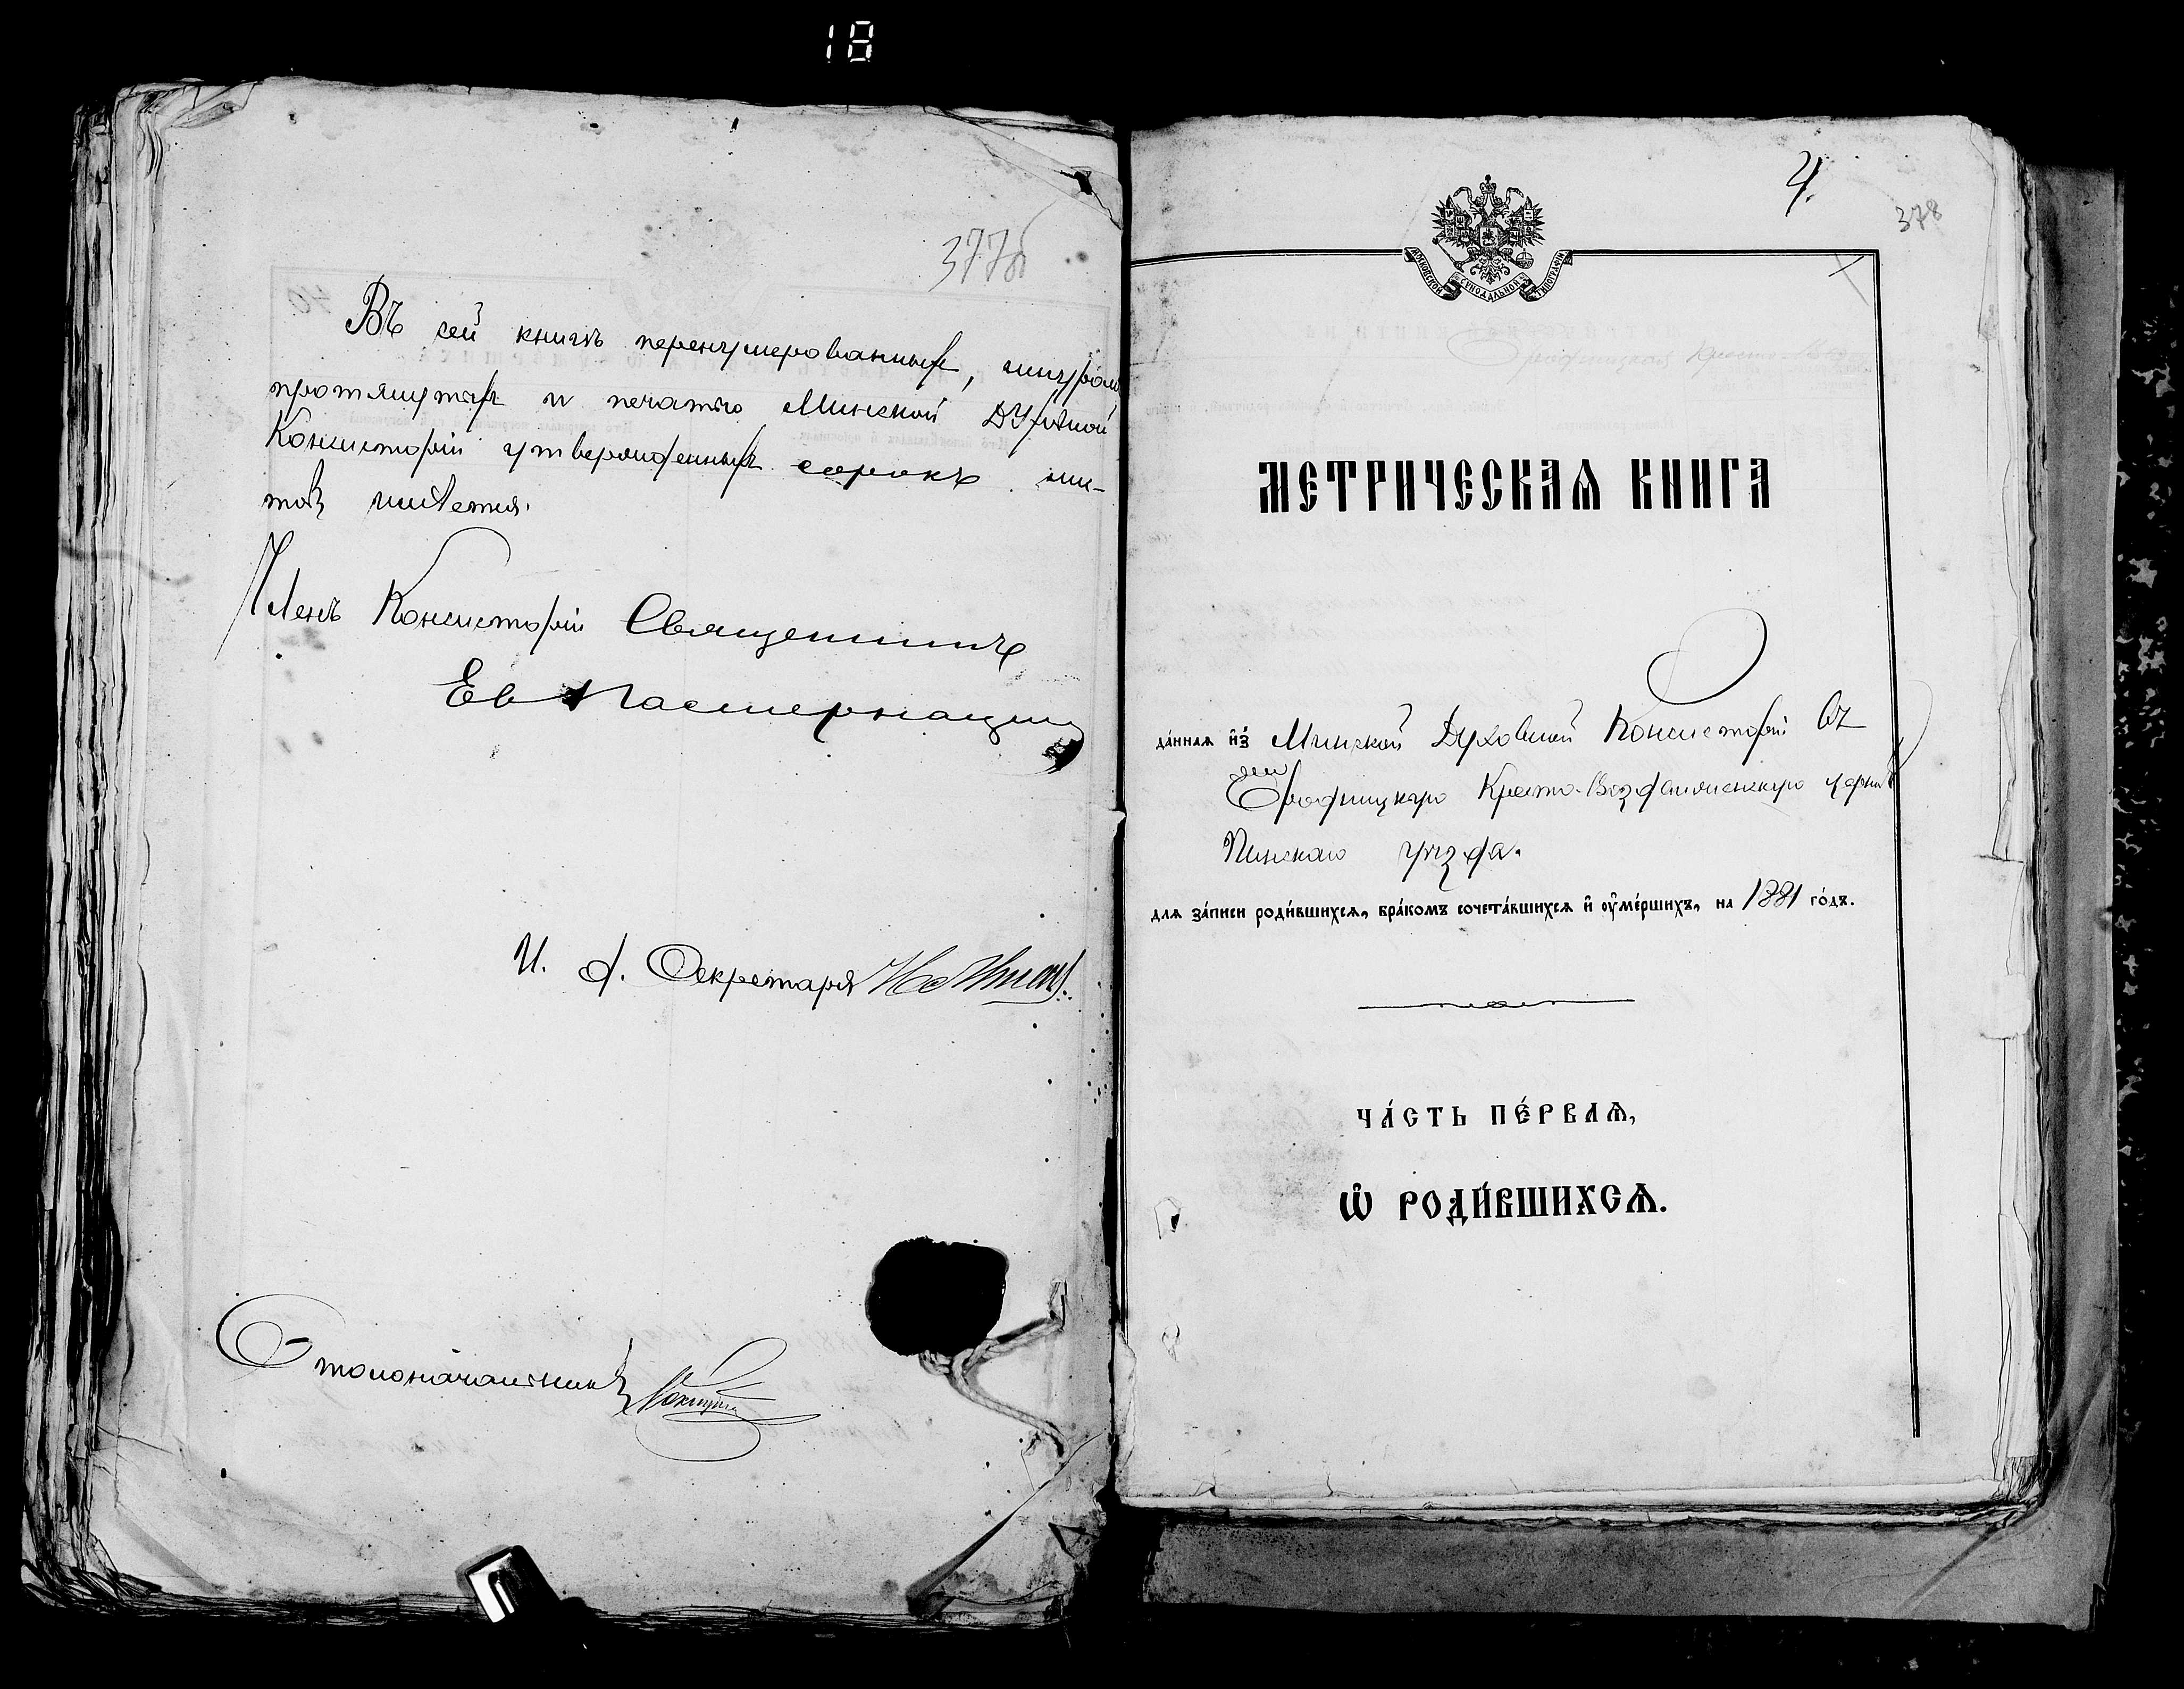 18
377об
Въ сей книгѣ перенумерованныхъ, шнуромъ
протянутыхъ и печатью Минской Духовной
Консисторіи утвержденныхъ сорокъ лис-
товъ имѣется.
Членъ Консисторіи Священникъ
Ев Пастернацкій
И. д. Секретаря
Столоначальникъ
4.
378
МОСКОВСКОЙ СѴНОДАЛЬНОЙ ТИПОГРАФІИ
МЕТРИЧЕСКАѦ КНИГА
да́ннаѧ и҆з̾ Минской Духовной Консисторіи въ
Кресто-Воздвиженскую церковь
Пинскаго уѣзда.
длѧ за́писи роди́вшихсѧ, бра́комъ сочета́вшихсѧ и҆ ᲂу҆ме́ршихъ, на 1881 го́дъ.
ЧА́СТЬ ПЕ́РВАѦ,
Ѡ҆ РОДИ́ВШИХСѦ.